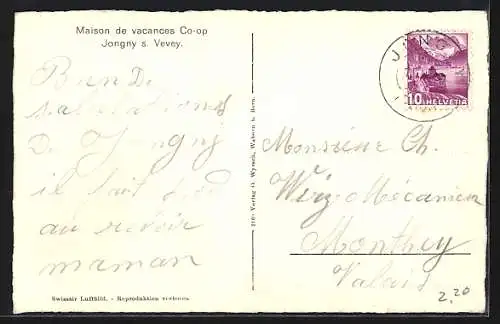 Maison de vacances Co-op
Jongny s. Vevey.
salutations
De Jongny
il fait
au revoir
maman
Swissair Luftbild. - Reproduktion verboten.
Verlag O. Wyrsch, Wabern b. Bern.
10 HELVETIA
Monsieur Ch.
Wirz Mécanicien
Monthey
Valais
2,20